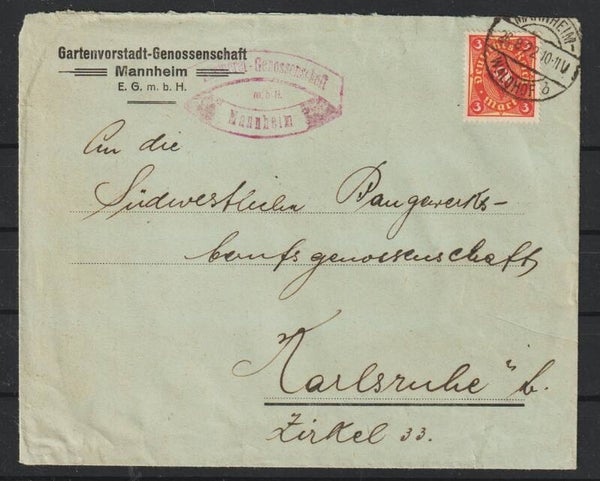 Gartenvorstadt-Genossenschaft
Mannheim
E. G. m. b. H.
-Genossenschaft
m.b.H.
Mannheim
MANNHEIM-
10-11V
WALDHOF b
3 3
Deutsches Reich
3 Mark 3
An die
Südwestliche Baugewerks-
berufsgenossenschaft
Karlsruhe i/b.
Zirkel 33.